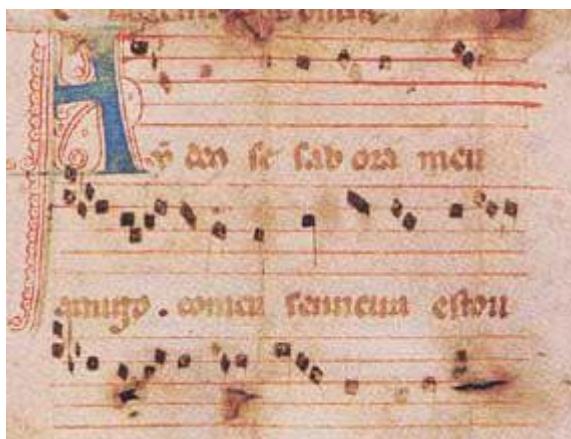 Aẏ deꝰ se sab ora meu
amigo . comeu senneira estou